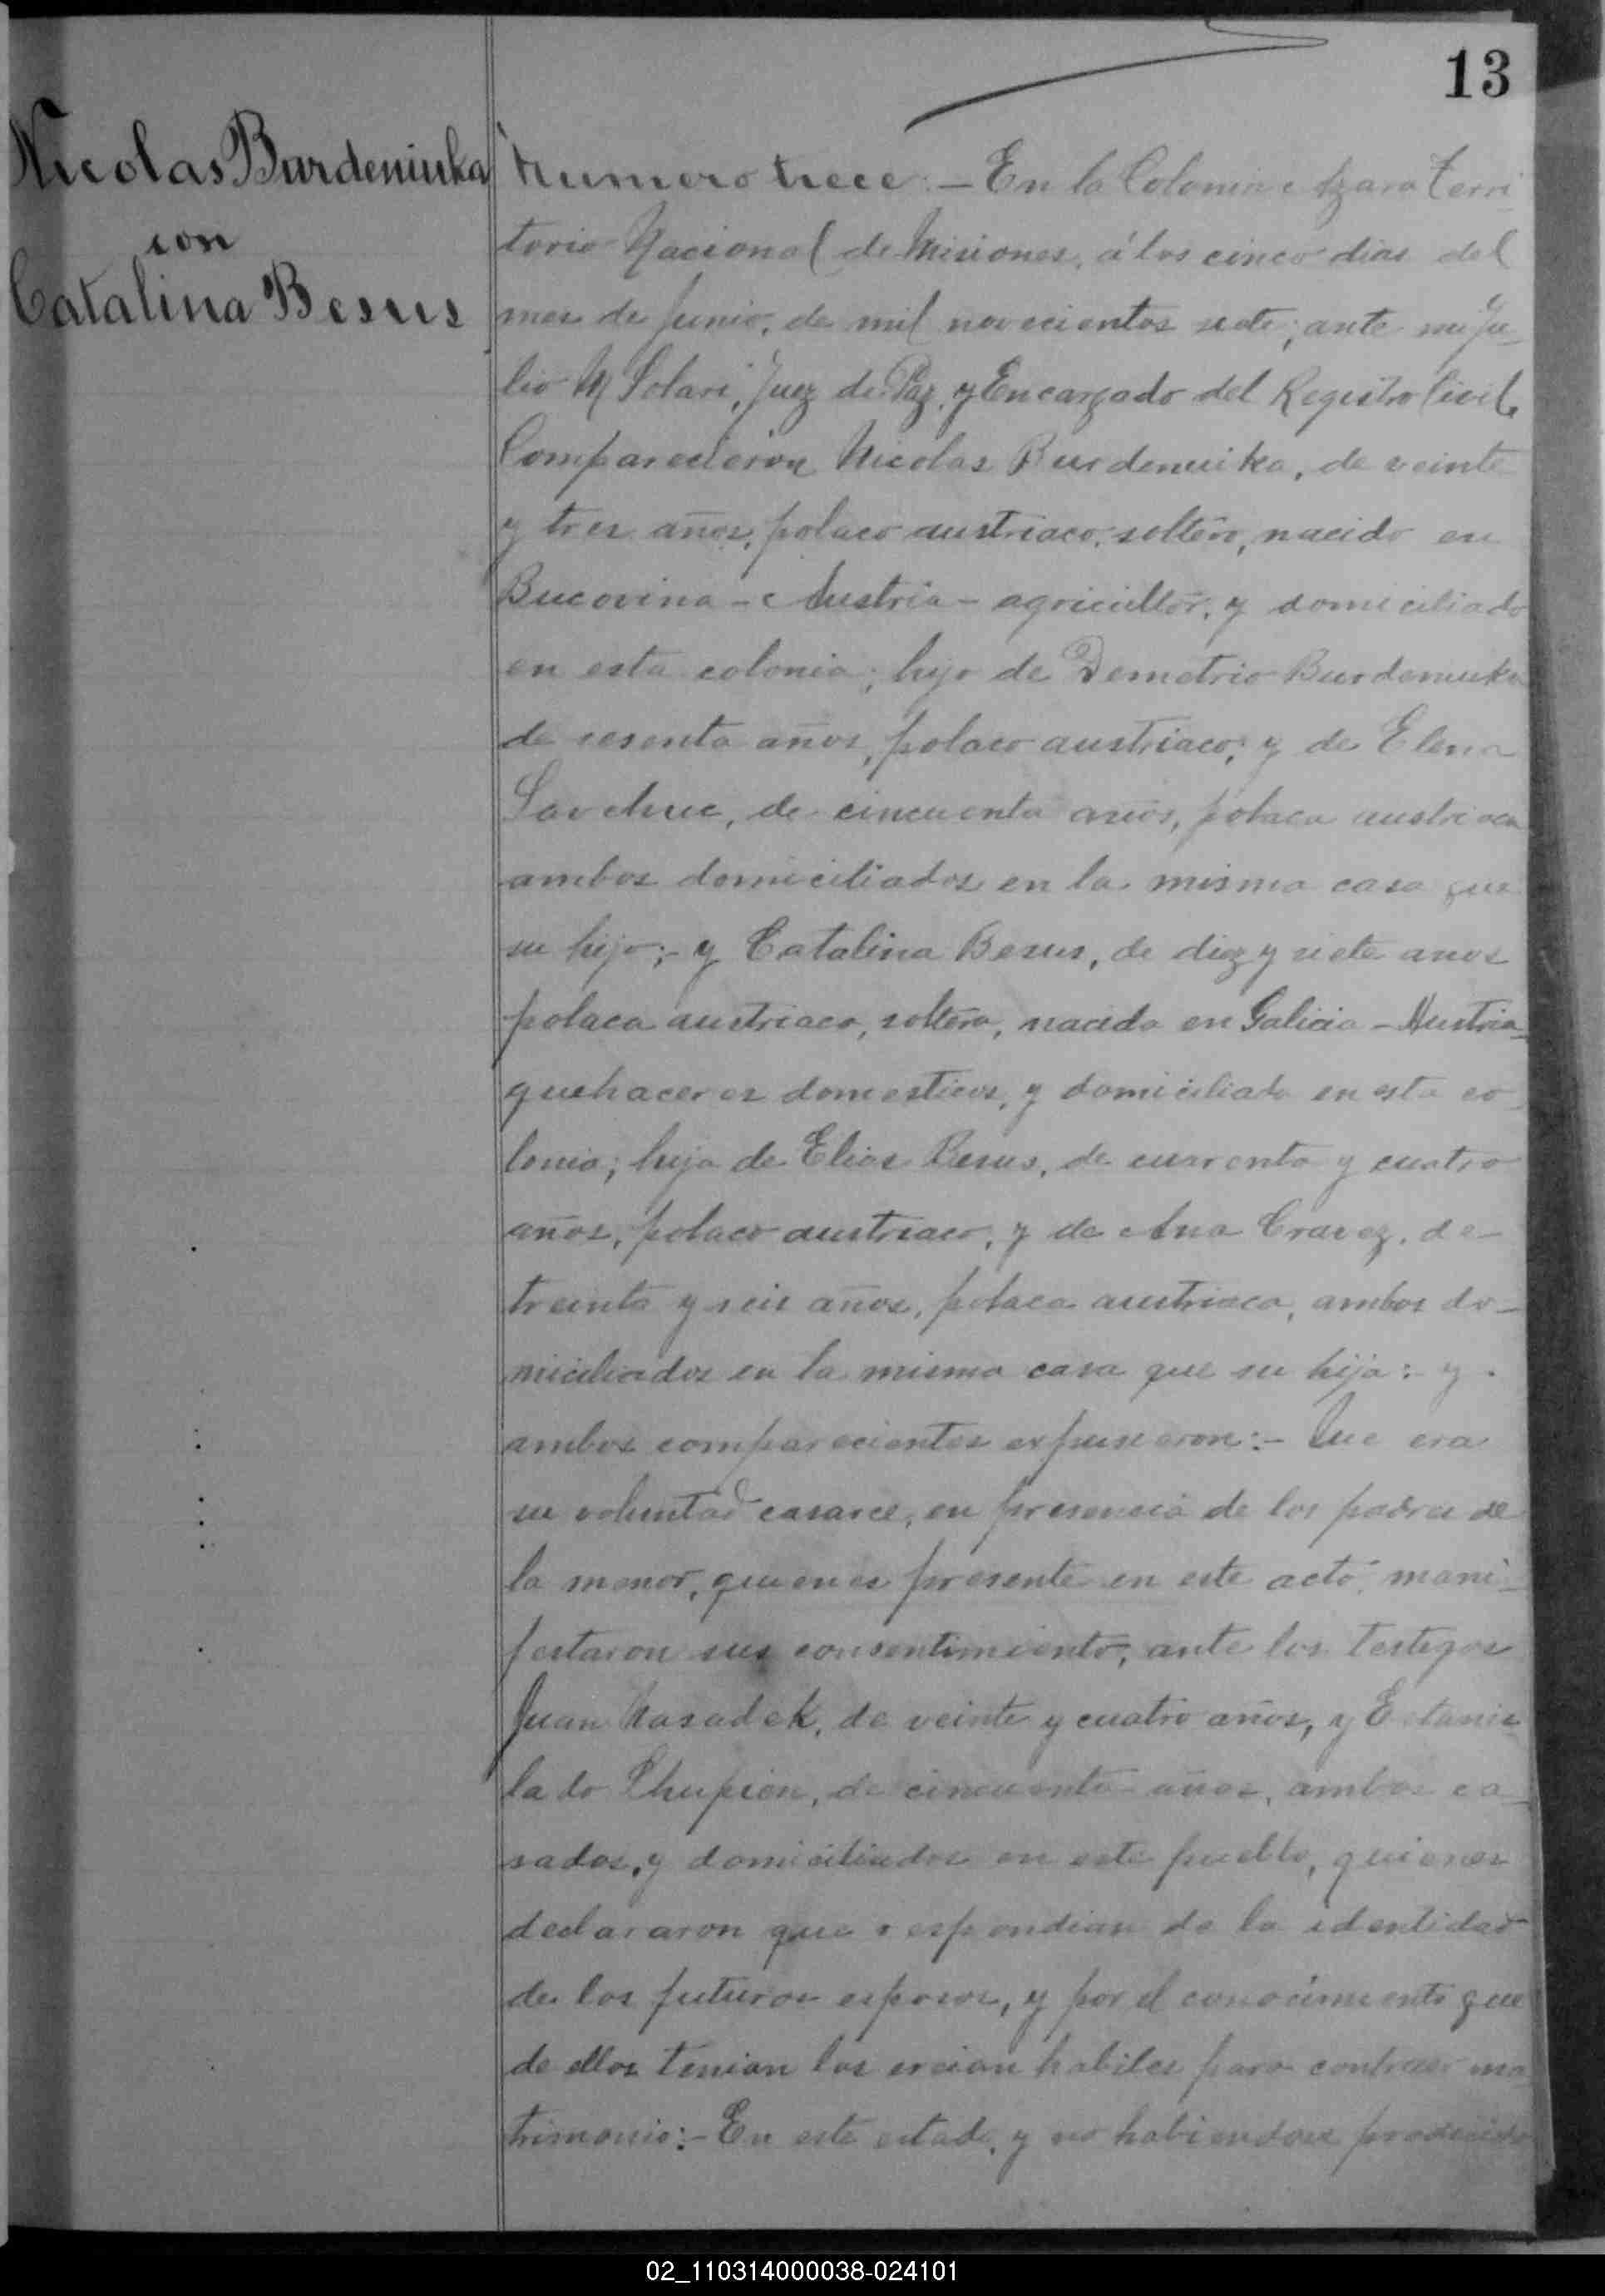 13
Nicolas Burdeniuka
con
Catalina Besus
Numero trece:– En la Colonia Azara Terri
torio Nacional de Misiones, á los cinco dias del
mes de Junio, de mil novecientos siete; ante mi Ju-
lio M Solari, Juez de Paz, y Encargado del Registro Civil,
Comparecieron Nicolas Burdeniuka, de veinte
y tres años, polaco austriaco, soltero, nacido en
Bucovina – Austria – agricultor, y domiciliado
en esta colonia; hijo de Demetrio Burdeniuka
de sesenta años, polaco austriaco; y de Elena
Savchuc, de cincuenta años, polaca austriaca
ambos domiciliados en la misma casa que
su hijo;– y Catalina Besus, de diez y siete anos
polaca austriaca, soltera, nacida en Galicia – Austria–
quehaceres domesticos, y domiciliada en esta co-
lonia; hija de Elias Besus, de cuarenta y cuatro
años, polaco austriaco, y de Ana Cravez, de–
treinta y seis años, polaca austriaca, ambos do–
miciliados en la misma casa que su hija:– y.
ambos comparecientes expusieron:– Que era
su voluntad casarce, en presencia de los padres de
la menor, quienes presente en este acto, mani–
festaron sus consentimiento, ante los testigos
Juan Nasadek, de veinte y cuatro años, y Estanis–
lado Chupien, de cincuenta años, ambos ca–
sados, y domiciliados en este pueblo, quienes
declararon que respondian de la identidad
de los futuros esposos, y por el conocimiento que
de ellos tenian los creian habiles para contraer ma
trimonio:– En este estado, y no habiendose producido
02_110314000038-024101